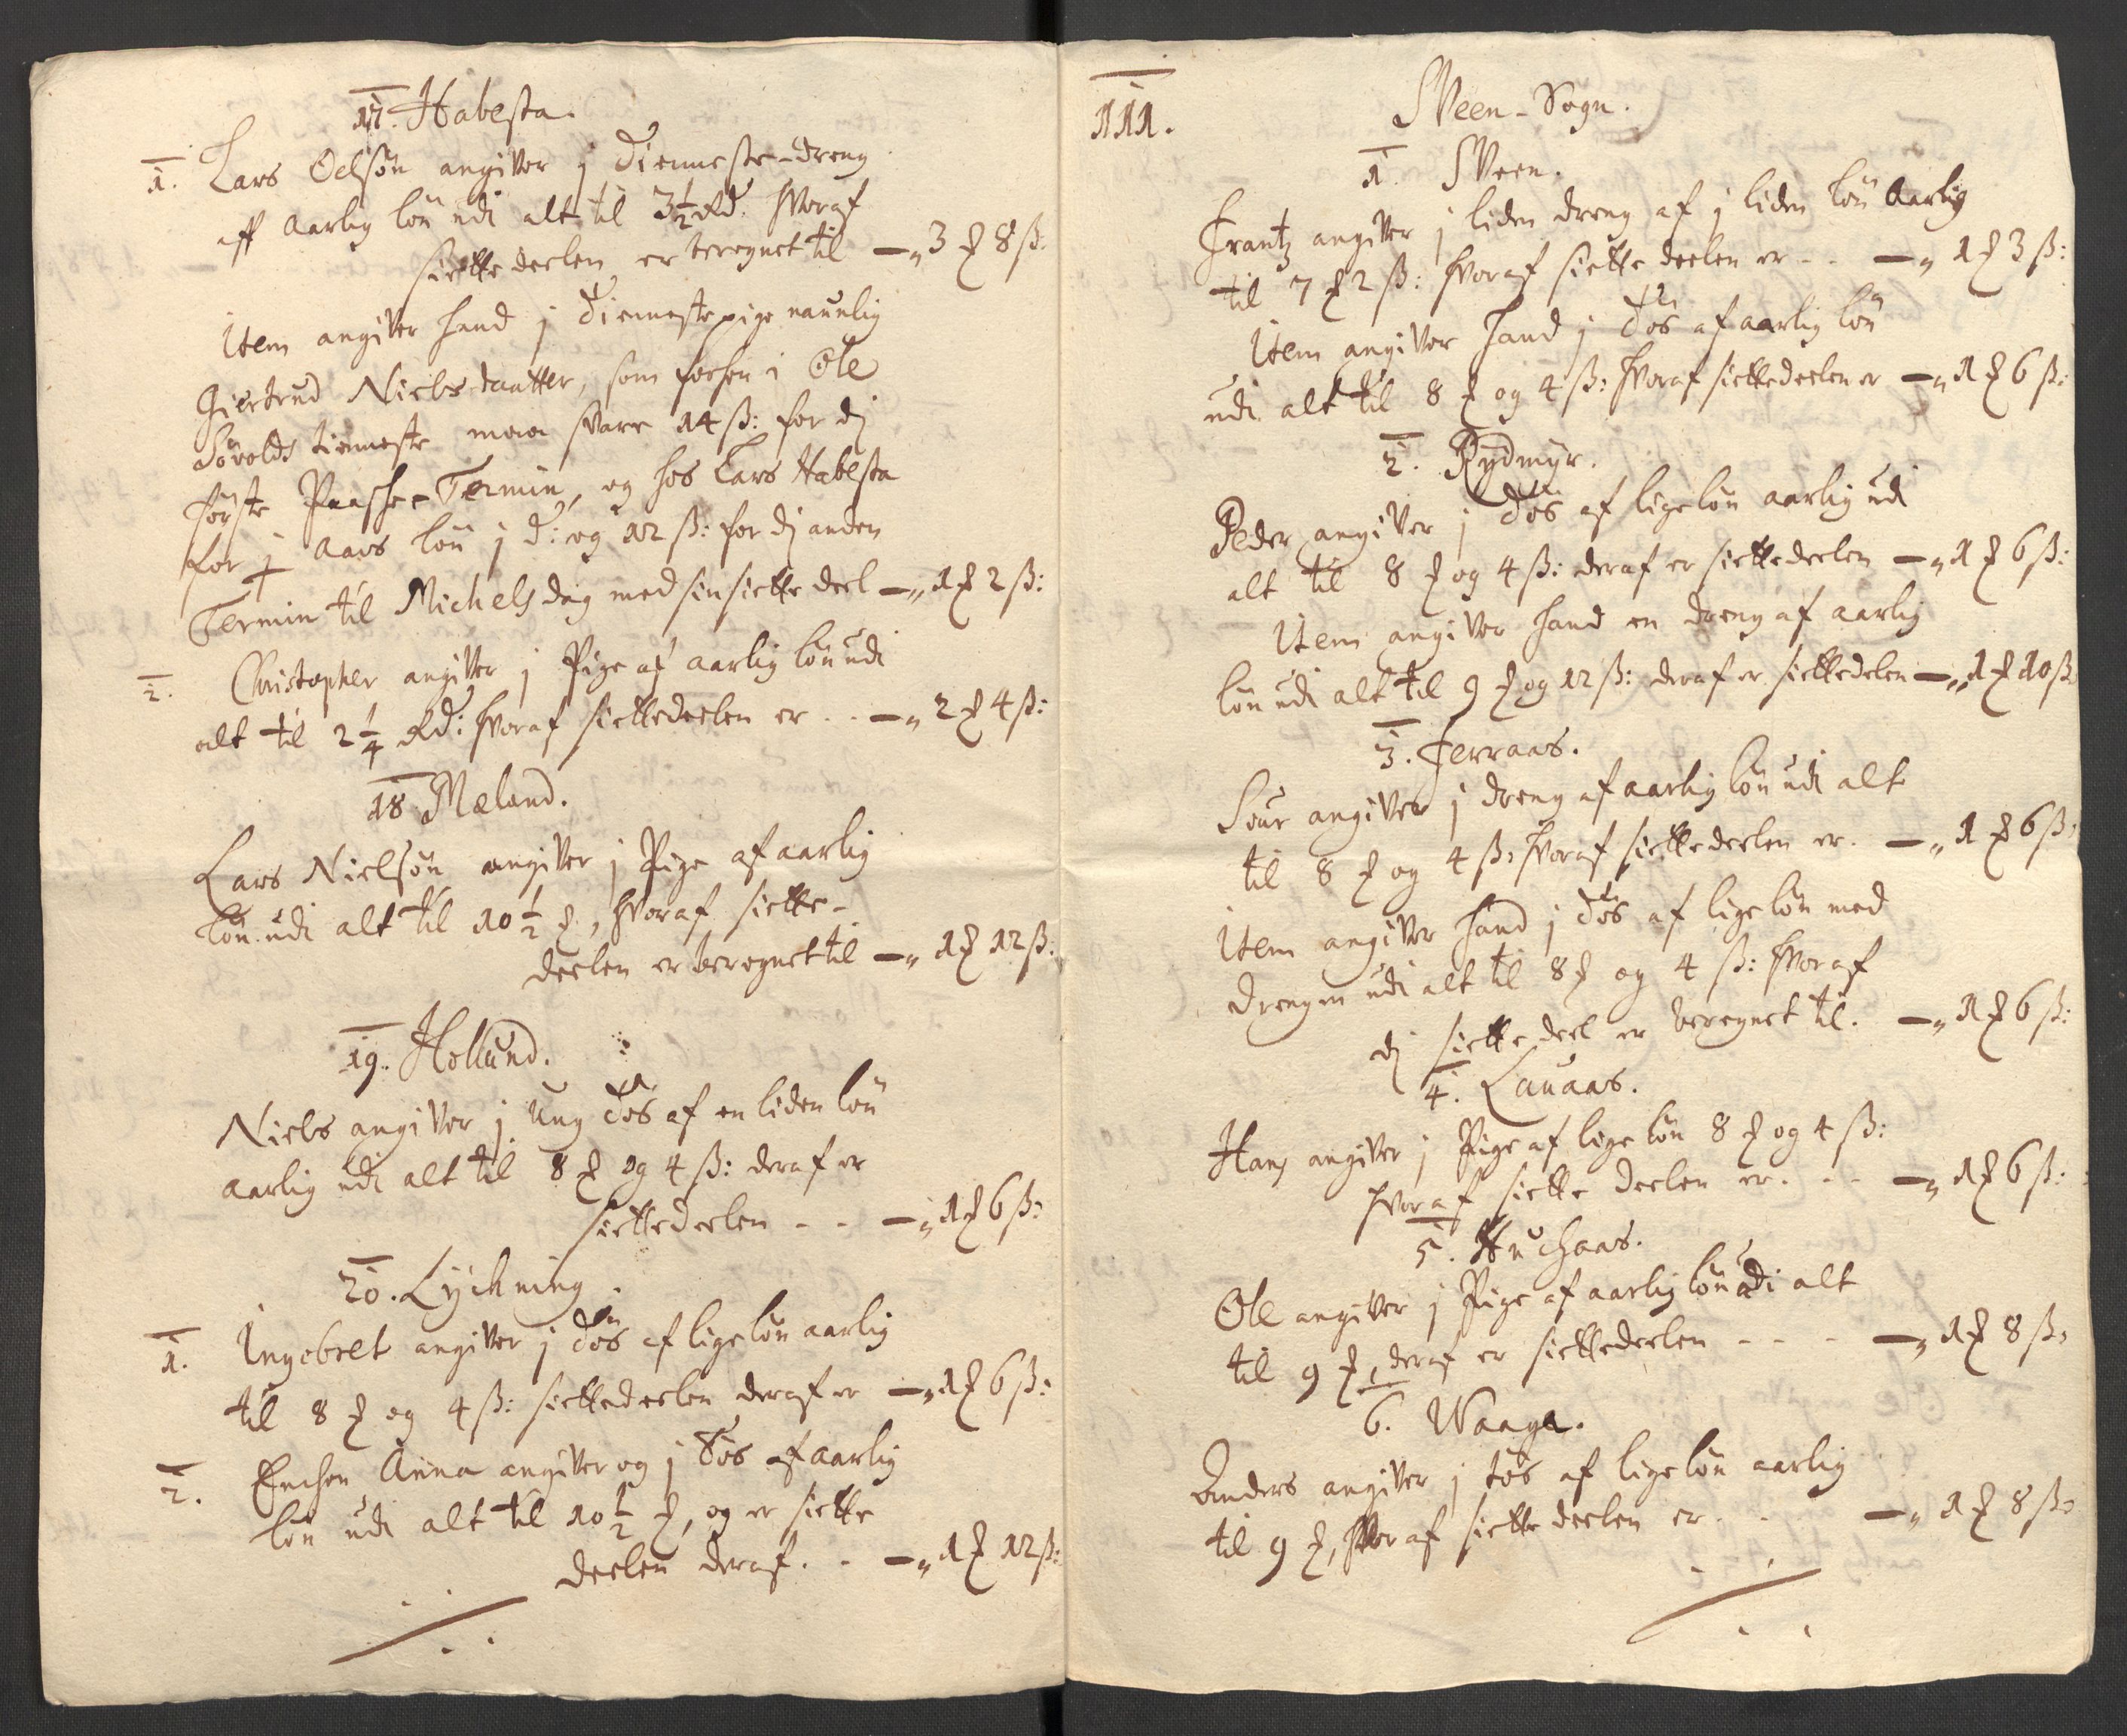 17. Habesta.
1. Lars Oelsøn angiver j Tienneste-dreng
aff aarlig løn udi alt til 3½ Rd. hvoraf
siette deelen er beregnet til — „ 3 ₰ 8 ß:
Item angiver hand j Tienneste pige naunlig
Giertrud Niels-daatter, som forhen i Ole
tienneste maa svare 14 ß: for dj
første Paasche-Termin, og hos Lars Habesta
for j Aars løn j d: og 12 ß: for dj anden
Termin til Michels dag med sin siette deel — „ 1 ₰ 2 ß:
2. Christopher angiver j Pige af aarlig løn udi
alt til 2¼ Rd: hvoraf siettedeelen er . . — „ 2 ₰ 4 ß:
18. Mæland.
Lars Nielsøn angiver j Pige af aarlig
løn udi alt til 10½ ₰, hvoraf siette-
deelen er beregnet til — „ 1 ₰ 12 ß:
19. Hollund.
Niels angiver j Ung Tøs af en liden løn
aarlig udi alt til 8 ₰ og 4 ß: deraf er
siettedeelen - - — „ 1 ₰ 6 ß:
20. Lychning.
1. Ingebret angiver j Tøs af lige løn aarlig
til 8 ₰ og 4 ß: siettedeelen deraf er — „ 1 ₰ 6 ß:
2. Enchen Anna angiver og j Tøs af aarlig
løn udi alt til 10½ ₰, og er siette
deelen deraf. - — „ 1 ₰ 12 ß:
III.
SVeen-Sogn.
1. SVeen.
Frantz angiver j liden dreng af j liden løn Aarlig
til 7 ₰ 2 ß: hvoraf siette deelen er - - — „ 1 ₰ 3 ß:
Item angiver hand j Tøs af aarlig løn
udi alt til 8 ₰ og 4 ß: hvoraf siettedeelen er — „ 1 ₰ 6 ß:
2. Rydmyr.
Peder angiver j Tøs af lige løn aarlig udi
alt til 8 ₰ og 4 ß: deraf er siettedeelen — „ 1 ₰ 6 ß:
Item angiver hand en dreng af aarlig
løn udi alt til 9 ₰ og 12 ß: deraf er siettedelen — „ 1 ₰ 10 ß
3. Ferraas.
Siur angiver j dreng af aarlig løn udi alt
til 8 ₰ og 4 ß, hvoraf siettedeelen er. — „ 1 ₰ 6 ß,
Item angiver hand j Tøs af lige løn med
drengen udi alt til 8 ₰ og 4 ß: hvoraf
dj siette deel er beregnet til. — „ 1 ₰ 6 ß:
4. Lauaas.
Hans angiver j Pige af lige løn 8 ₰ og 4 ß:
hvoraf siette deelen er. - - — „ 1 ₰ 6 ß:
5.
Ole angiver j Pige af aarlig løn udi alt
til 9 ₰, deraf er siettedeelen - - - — „ 1 ₰ 8 ß,
6. Waage.
Anders angiver j tøs af lige løn aarlig
til 9 ₰, hvoraf siette deelen er. - — „ 1 ₰ 8 ß,